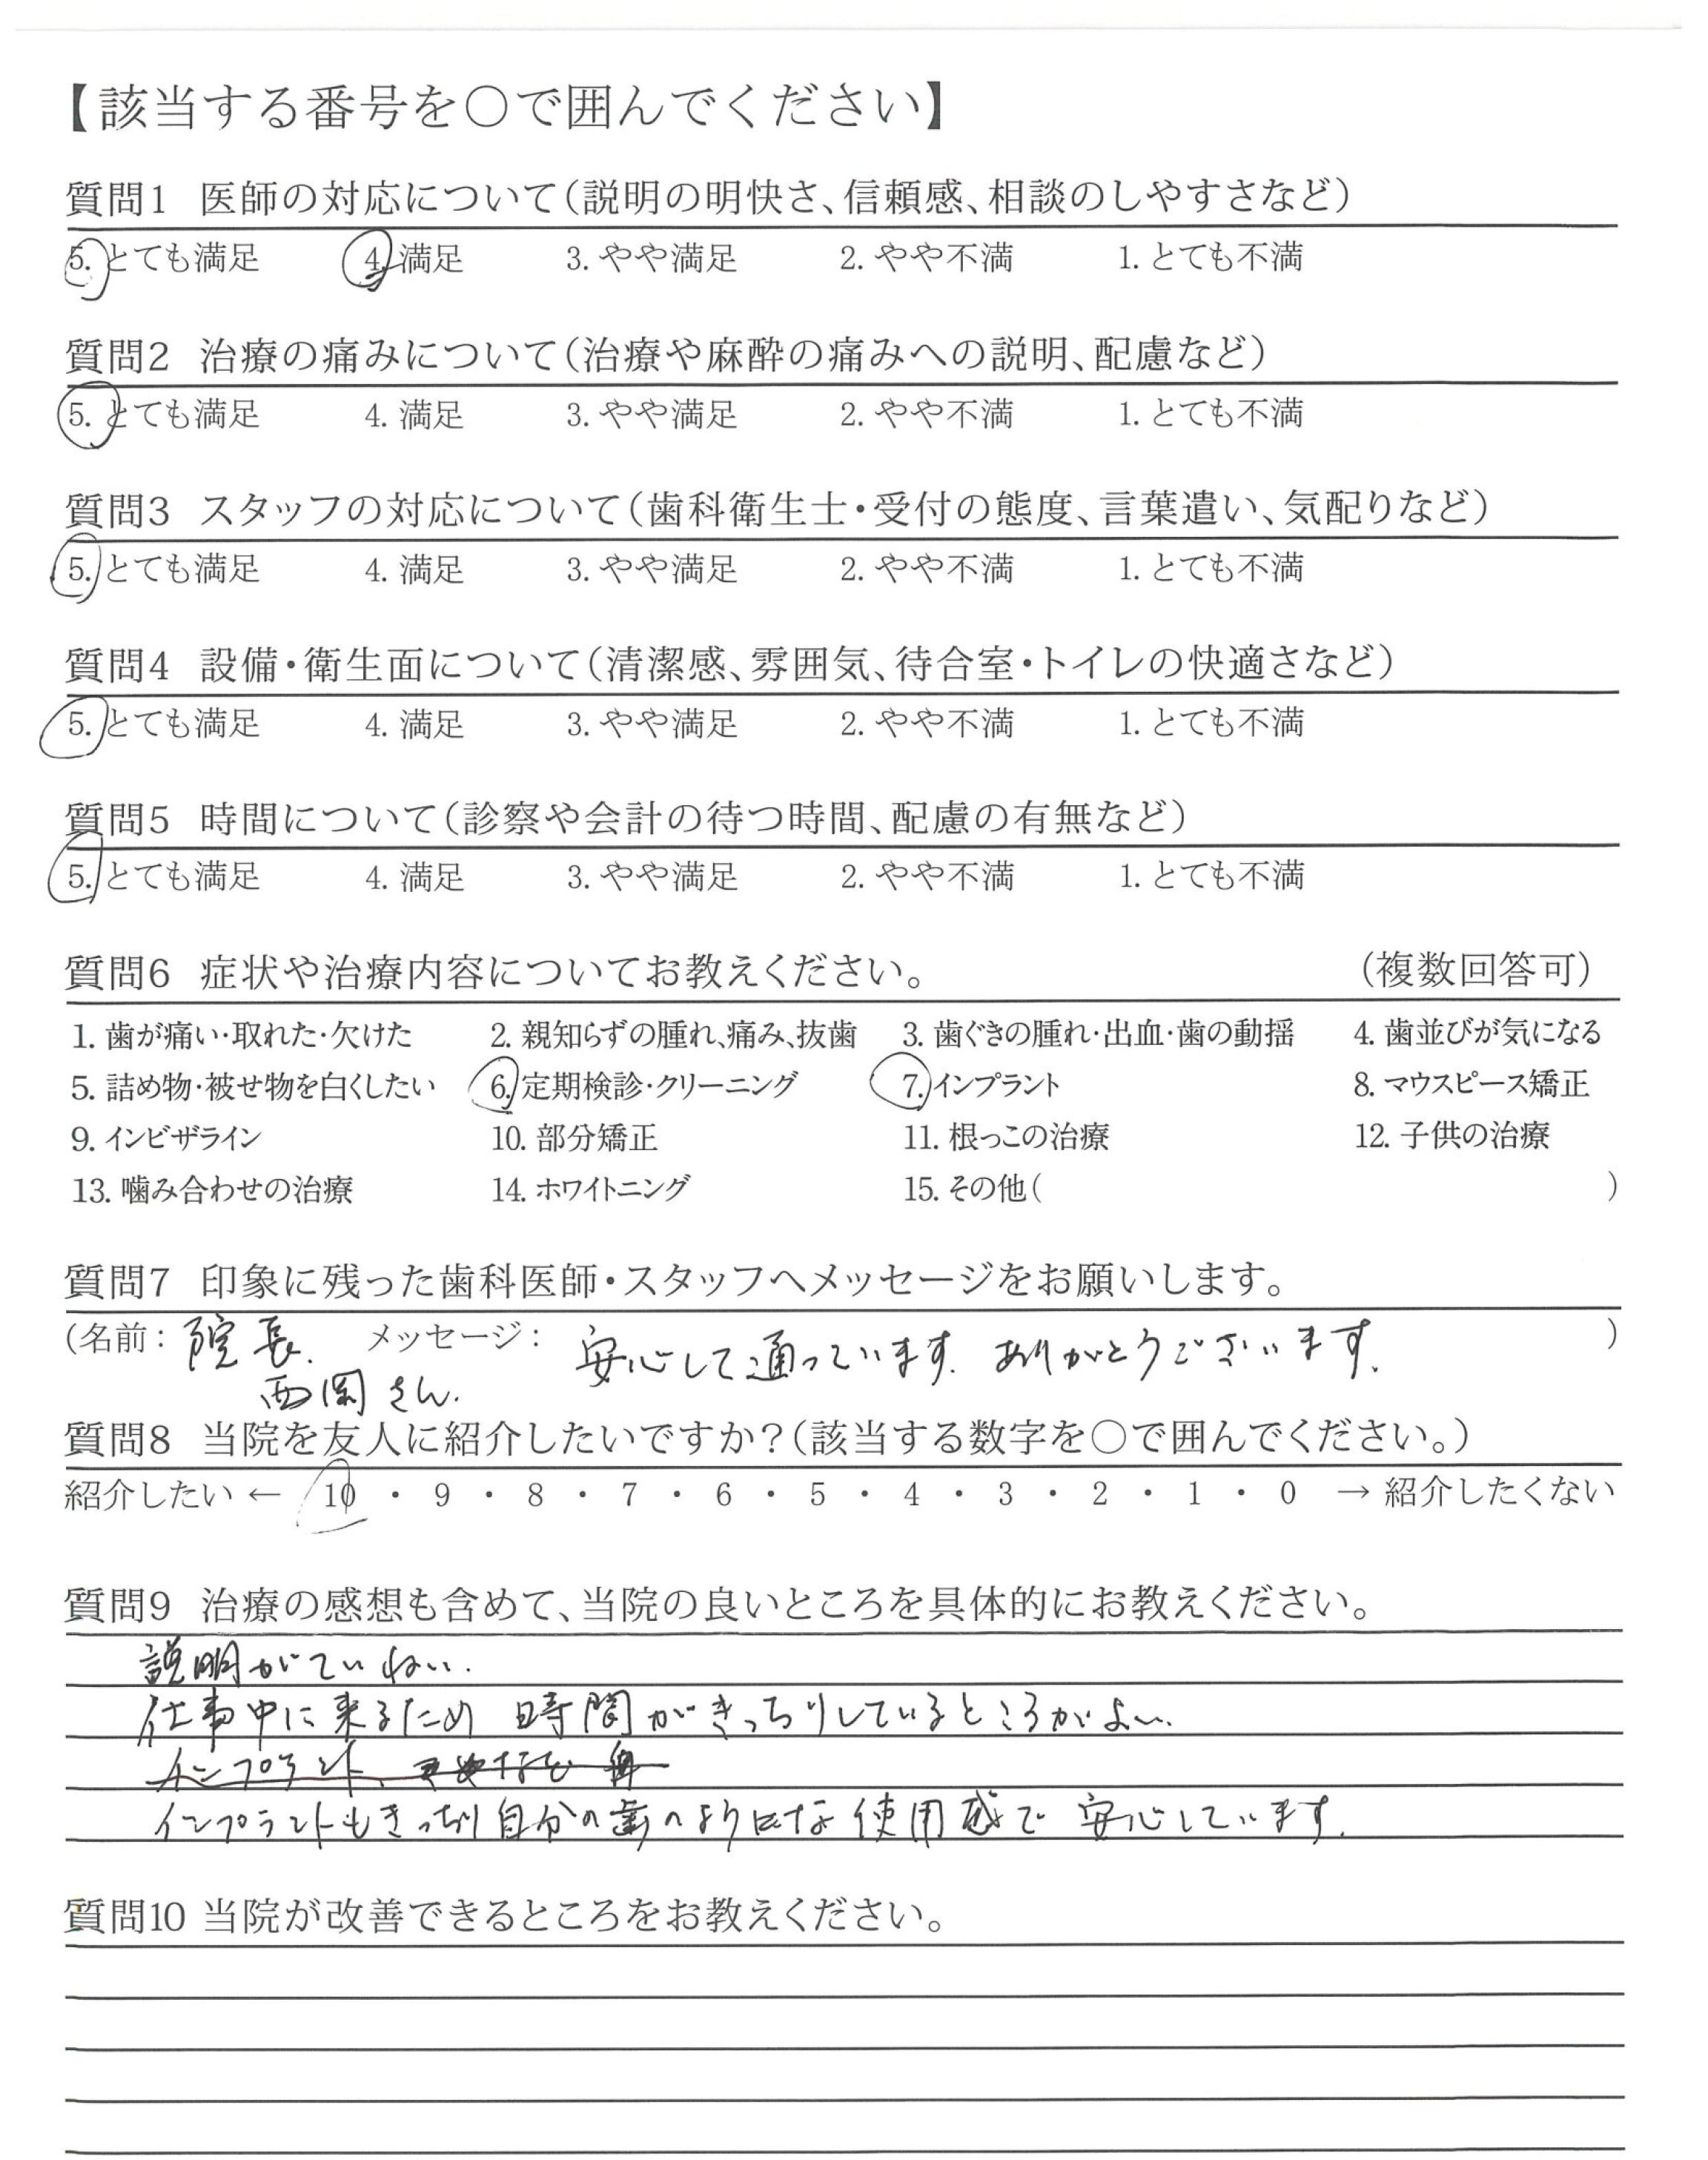 【該当する番号を〇で囲んでください】
質問1 医師の対応について(説明の明快さ、信頼感、相談のしやすさなど)
5. とても満足 4. 満足 3. やや満足 2. やや不満 1. とても不満
質問2 治療の痛みについて(治療や麻酔の痛みへの説明、配慮など)
5. とても満足 4. 満足 3. やや満足 2. やや不満 1. とても不満
質問3 スタッフの対応について(歯科衛生士・受付の態度、言葉遣い、気配りなど)
5. とても満足 4. 満足 3. やや満足 2. やや不満 1. とても不満
質問4 設備・衛生面について(清潔感、雰囲気、待合室・トイレの快適さなど)
5. とても満足 4. 満足 3. やや満足 2. やや不満 1. とても不満
質問5 時間について(診察や会計の待つ時間、配慮の有無など)
5. とても満足 4. 満足 3. やや満足 2. やや不満 1. とても不満
質問6 症状や治療内容についてお教えください。 (複数回答可)
1. 歯が痛い・取れた・欠けた 2. 親知らずの腫れ、痛み、抜歯 3. 歯ぐきの腫れ・出血・歯の動揺 4. 歯並びが気になる
5. 詰め物・被せ物を白くしたい 6. 定期検診・クリーニング 7. インプラント 8. マウスピース矯正
9. インビザライン 10. 部分矯正 11. 根っこの治療 12. 子供の治療
13. 噛み合わせの治療 14. ホワイトニング 15. その他( )
質問7 印象に残った歯科医師・スタッフへメッセージをお願いします。
(名前: 院長. メッセージ: 安心して通っています. ありがとうございます. )
西岡さん.
質問8 当院を友人に紹介したいですか?(該当する数字を〇で囲んでください。)
紹介したい ← 10 ・ 9 ・ 8 ・ 7 ・ 6 ・ 5 ・ 4 ・ 3 ・ 2 ・ 1 ・ 0 → 紹介したくない
質問9 治療の感想も含めて、当院の良いところを具体的にお教えください。
説明がていねい.
仕事中に来るため 時間がきっちりしているところがよい.
インプラント、
インプラントもきっちり自分の歯のような使用感で 安心しています.
質問10 当院が改善できるところをお教えください。